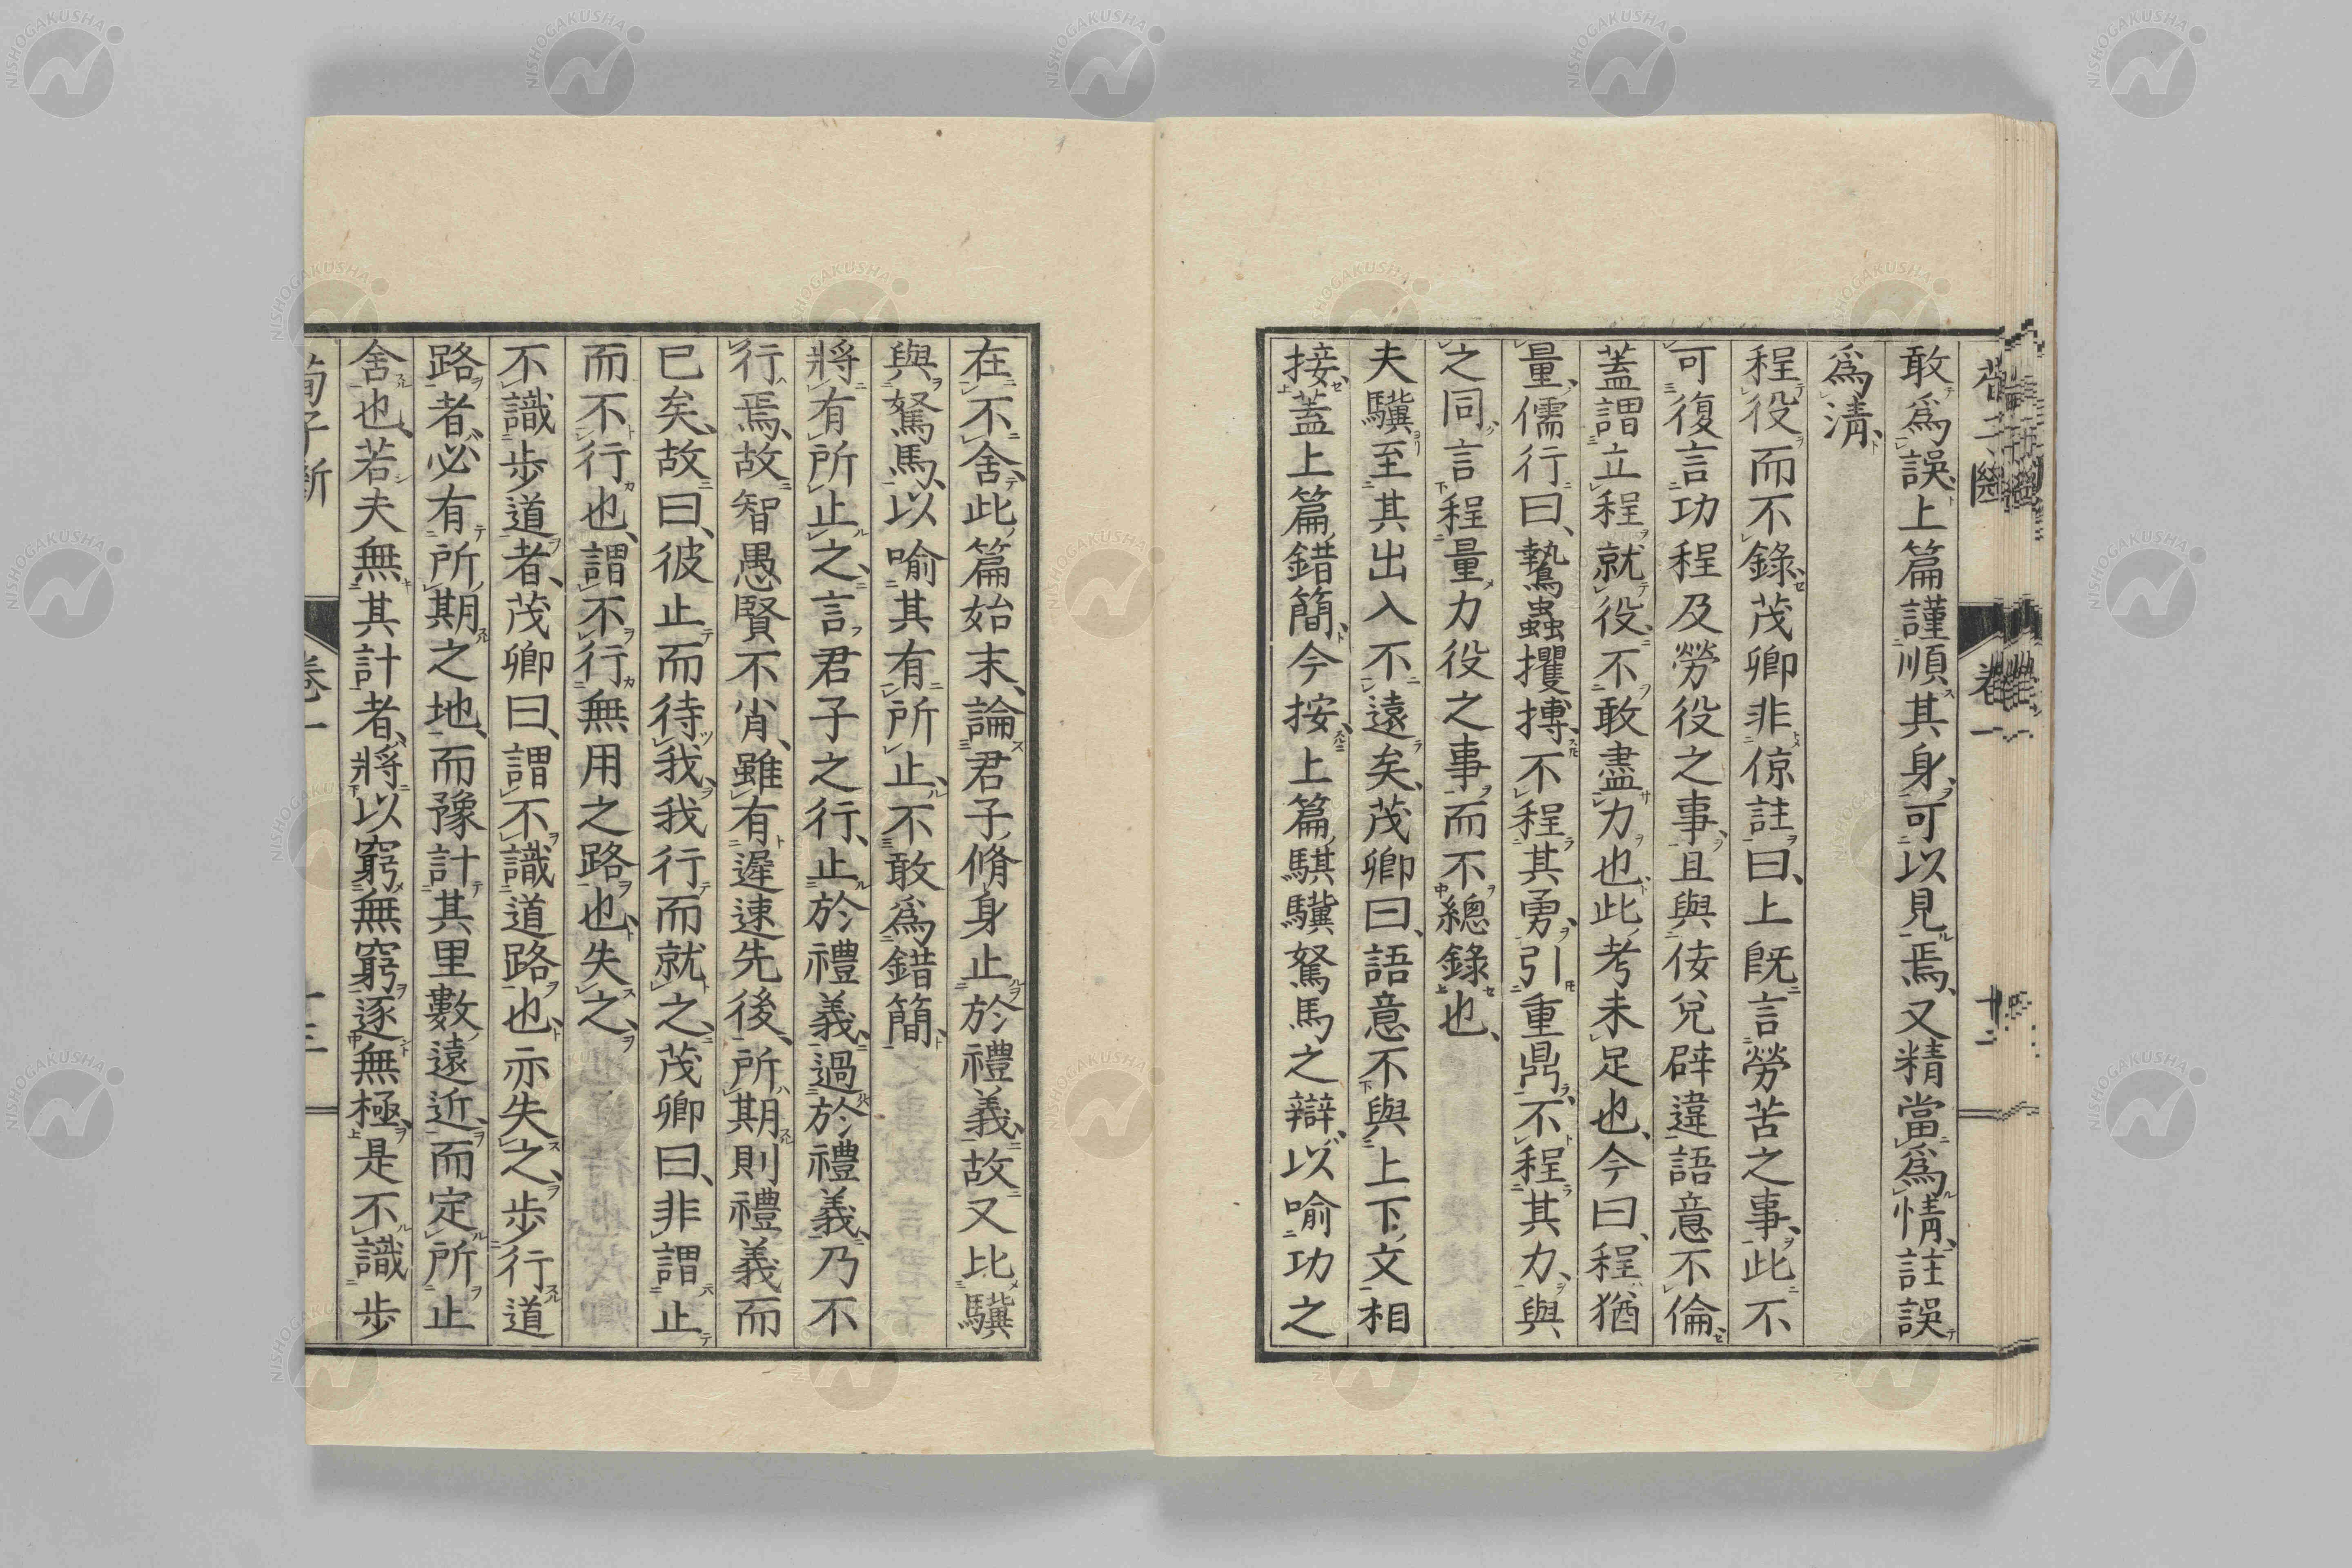 敢爲誤上篇謹順其身可以見焉又精當爲情註誤
爲清
程役而不錄茂卿非倞註曰上既言勞苦之事此不
可復言功程及勞役之事且與侫兌辟違語意不倫
蓋謂立程就役不敢盡力也此考未足也今曰程猶
量儒行曰鷙蟲攫搏不程其勇引重鼎不程其力與
之同言程量力役之事而不總錄也
夫驥至其出入不遠矣茂卿曰語意不與上下文相
接蓋上篇錯簡今按上篇騏驥駑馬之辯以喻功之
在不舍此篇始末論君子脩身止於禮義故又比驥
與駑馬以喻其有所止不敢爲錯簡
將有所止之言君子之行止於禮義過於禮義乃不
行焉故智愚賢不肖雖有遲速先後所期則禮義而
已矣故曰彼止而待我我行而就之茂卿曰非謂止
而不行也謂不行無用之路也失之
不識步道者茂卿曰謂不識道路也亦失之步行道
路者必有所期之地而豫計其里數遠近而定所止
舍也若夫無其計者將以窮無窮逐無極是不識步
荀子斷 卷一 十三
NISHOGAKUSHA